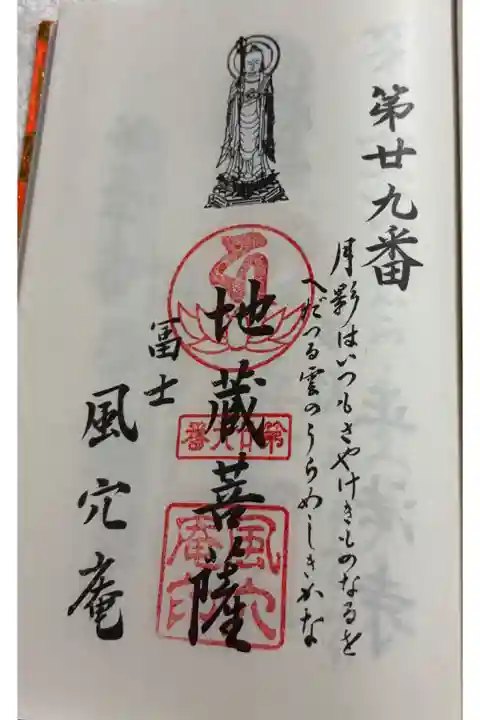 第廿九番
月影はいつもさやけきものなるを
へだつる雲のうらめしきかな
地蔵菩薩
第廿八番
風穴
庵印
冨士
風穴庵